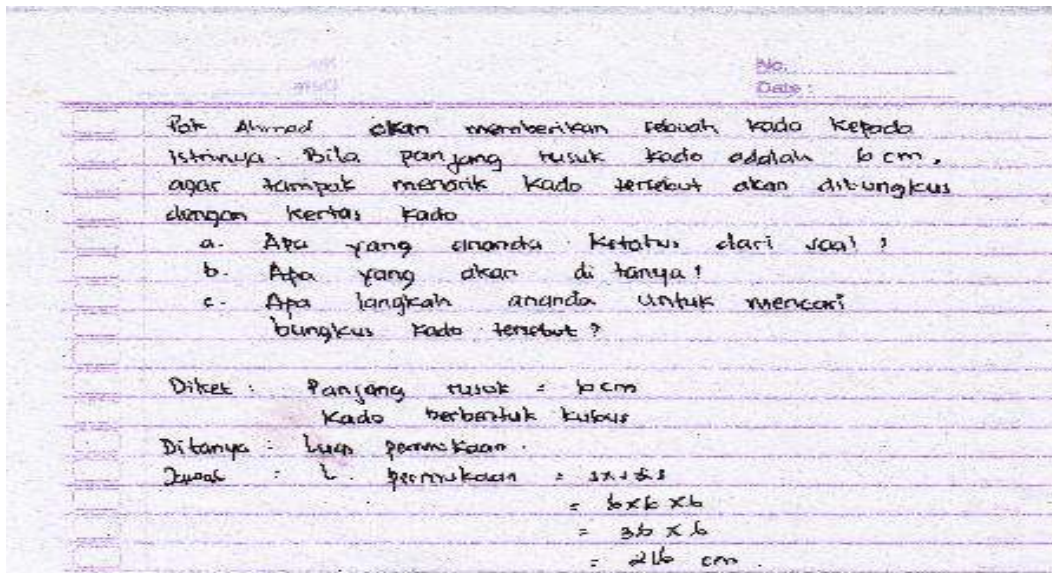 No.
Date :
Pak Ahmad akan memberikan sebuah kado kepada
istrinya. Bila panjang rusuk kado adalah 6 cm,
agar tampak menarik kado tersebut akan dibungkus
dengan kertas kado
a. Apa yang ananda ketahui dari soal ?
b. Apa yang akan di tanya ?
c. Apa langkah ananda untuk mencari
bungkus kado tersebut ?
Diket : Panjang rusuk = 6 cm
Kado berbentuk kubus
Ditanya : Luas permukaan .
Jawab : L. permukaan =
= 6 x 6 x 6
= 36 x 6
= 216 cm .